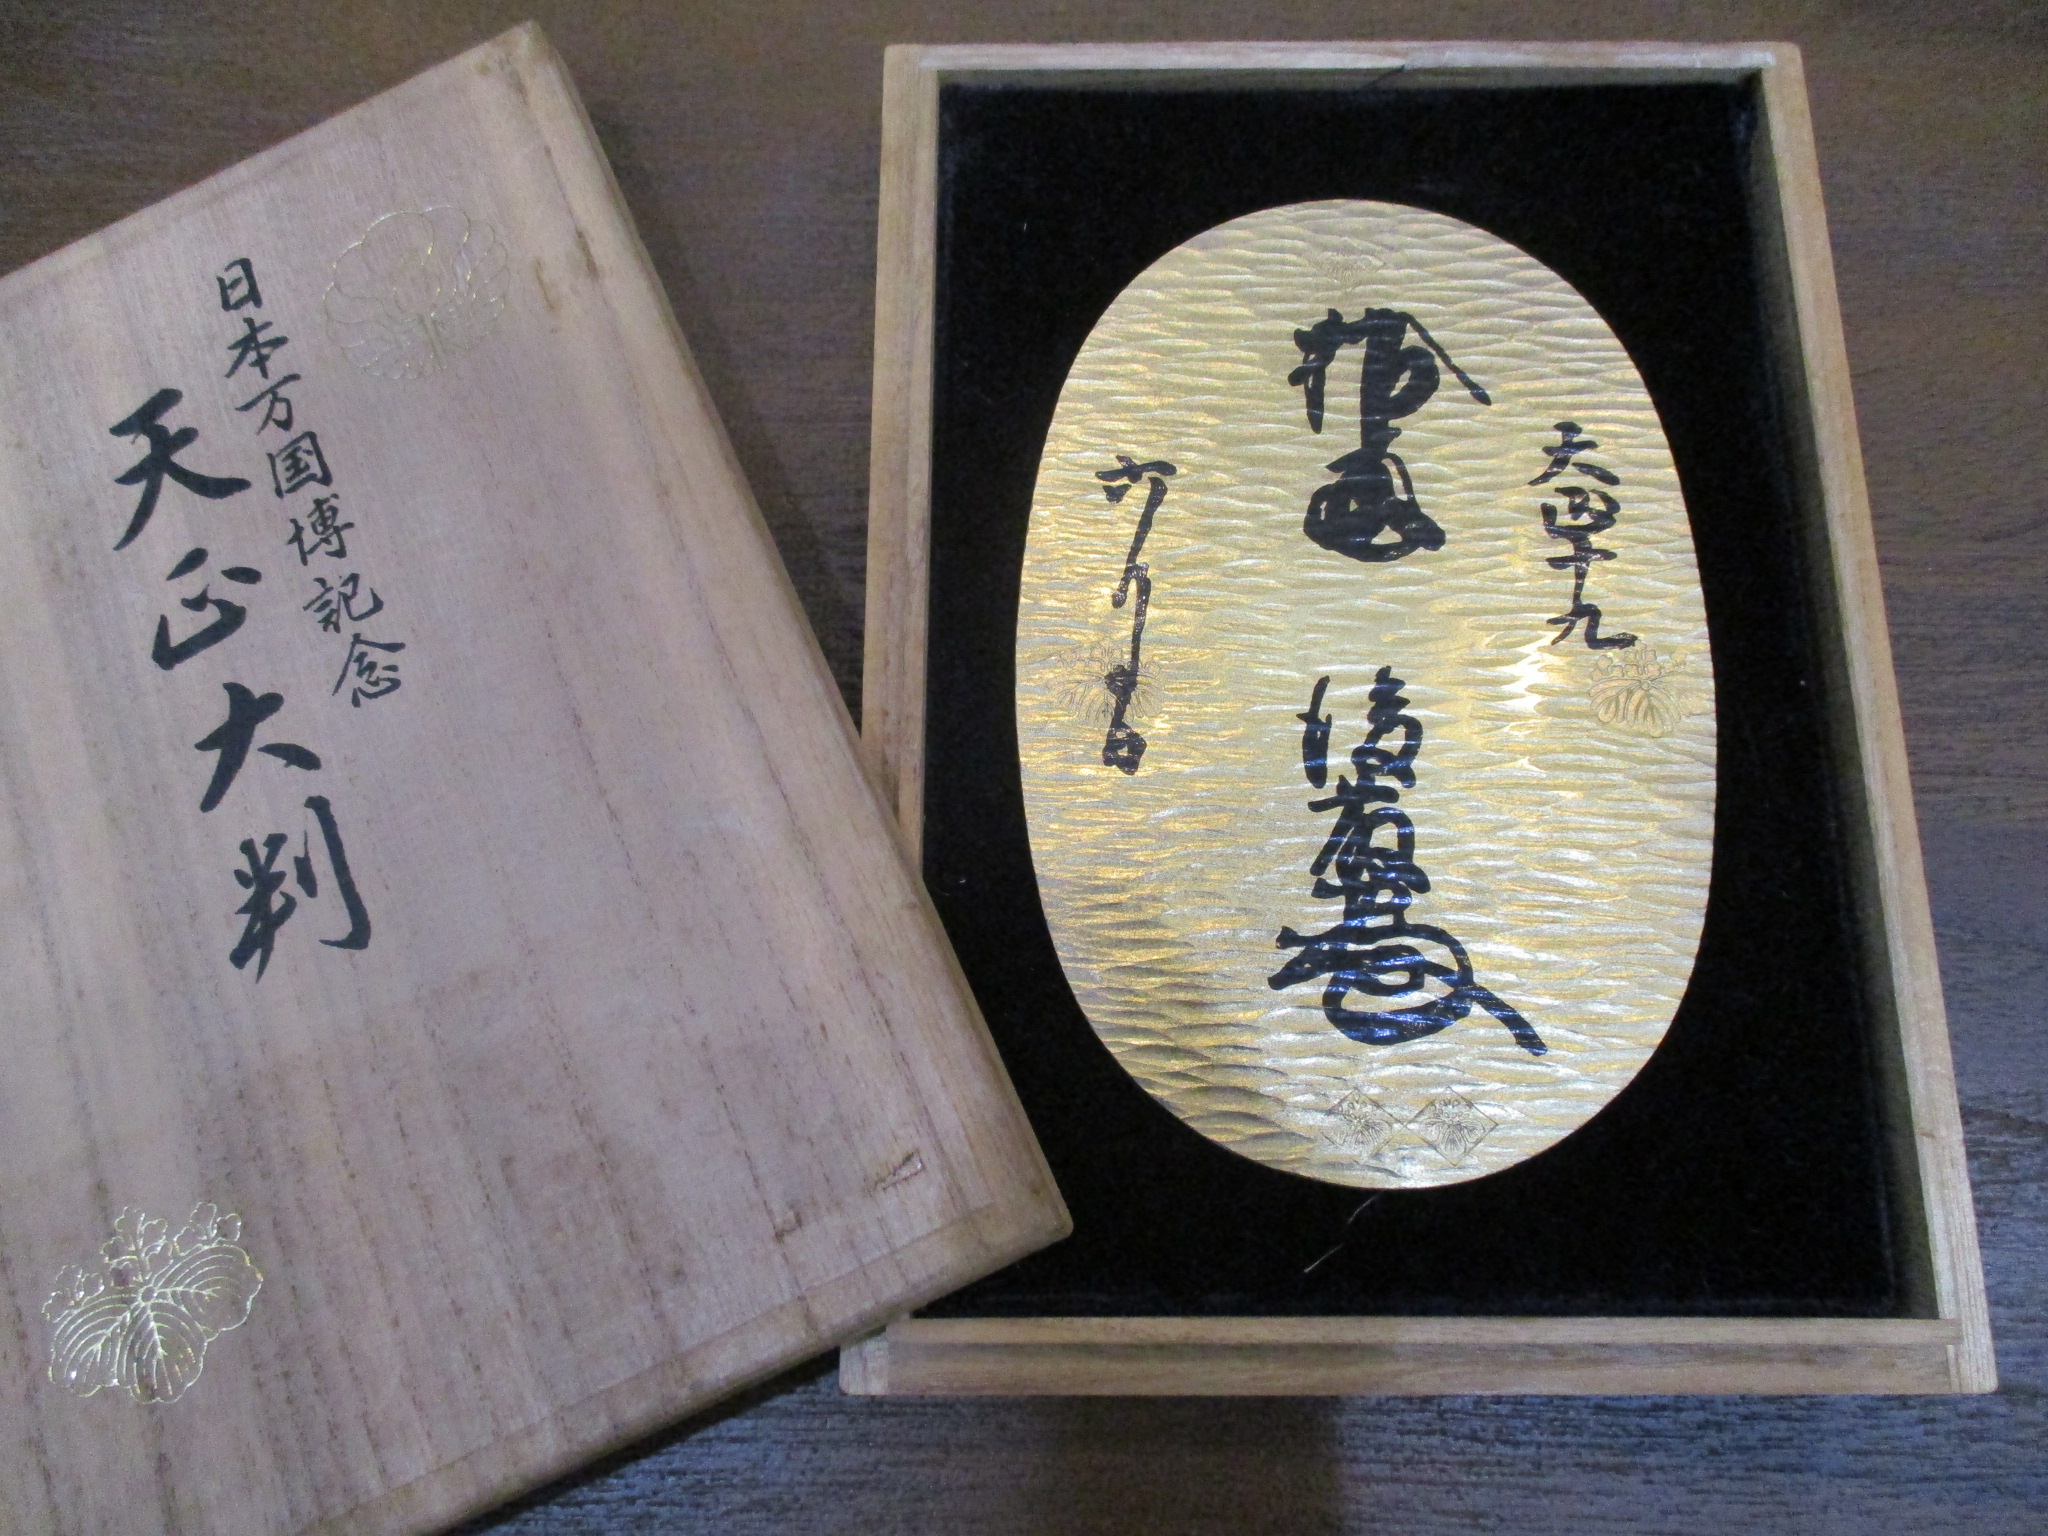 日本万国博記念
天正大判
天正十九
拾両
後藤
六月日